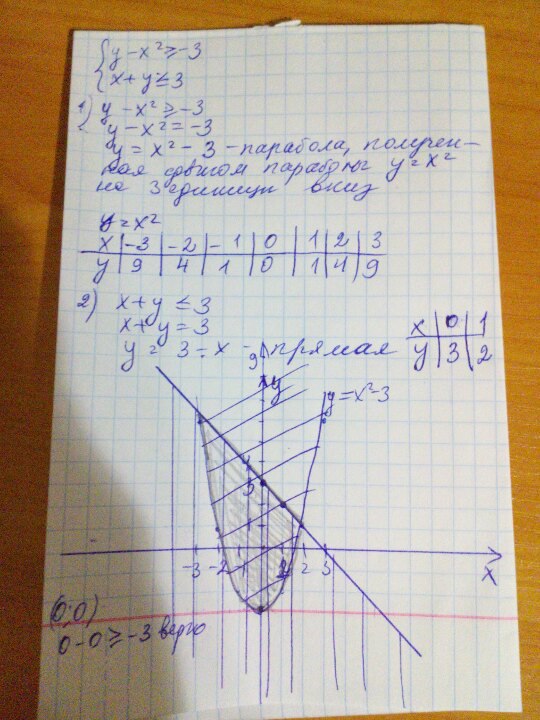 { y - x² ≥ -3
{ x + y ≤ 3
1) y - x² ≥ -3
y - x² = -3
y = x² - 3 - парабола, получен-
ная сдвигом параболы y = x²
на 3 единицы вниз
y = x²
x | -3 | -2 | -1 | 0 | 1 | 2 | 3
y | 9 | 4 | 1 | 0 | 1 | 4 | 9
2) x + y ≤ 3
x + y = 3
y = 3 - x - прямая
x | 0 | 1
y | 3 | 2
9
y
y = x² - 3
3
-3 -2 -1 1 2 3
x
(0;0)
0 - 0 ≥ -3 верно